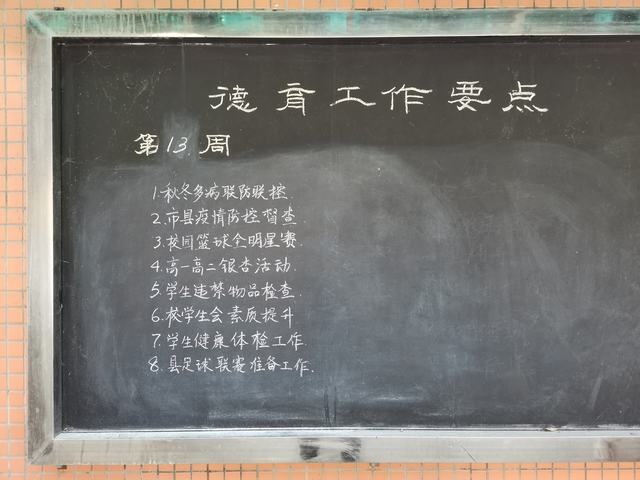 德育工作要点
第13周
1.秋冬多病联防联控.
2.市县疫情防控督查.
3.校园篮球全明星赛.
4.高一高二银杏活动.
5.学生违禁物品检查.
6.校学生会素质提升
7.学生健康体检工作
8.县足球联赛准备工作.